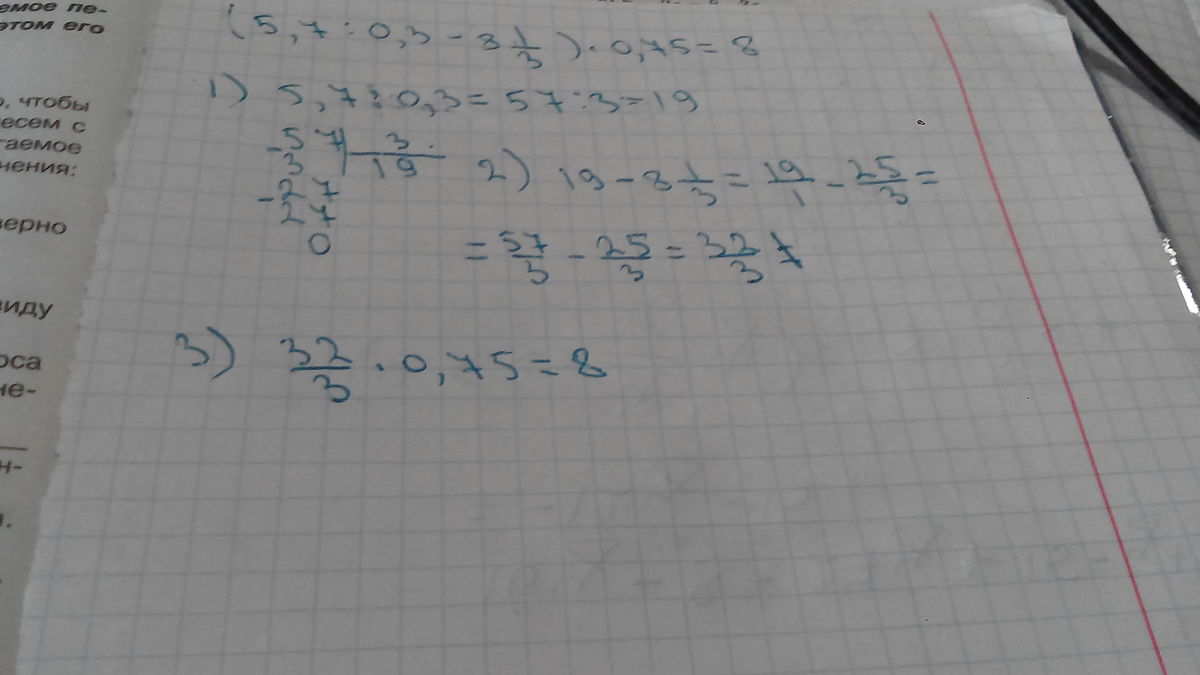 емое пе-
этом его
, чтобы
есем с
гаемое
нения:
верно
виду
рса
не-
н-
(5,7 : 0,3 - 8 1/3) · 0,75 = 8
1) 5,7 : 0,3 = 57 : 3 = 19
-57 | 3
3 | 19
-27
27
0
2) 19 - 8 1/3 = 19/1 - 25/3 =
= 57/3 - 25/3 = 32/3
3) 32/3 · 0,75 = 8